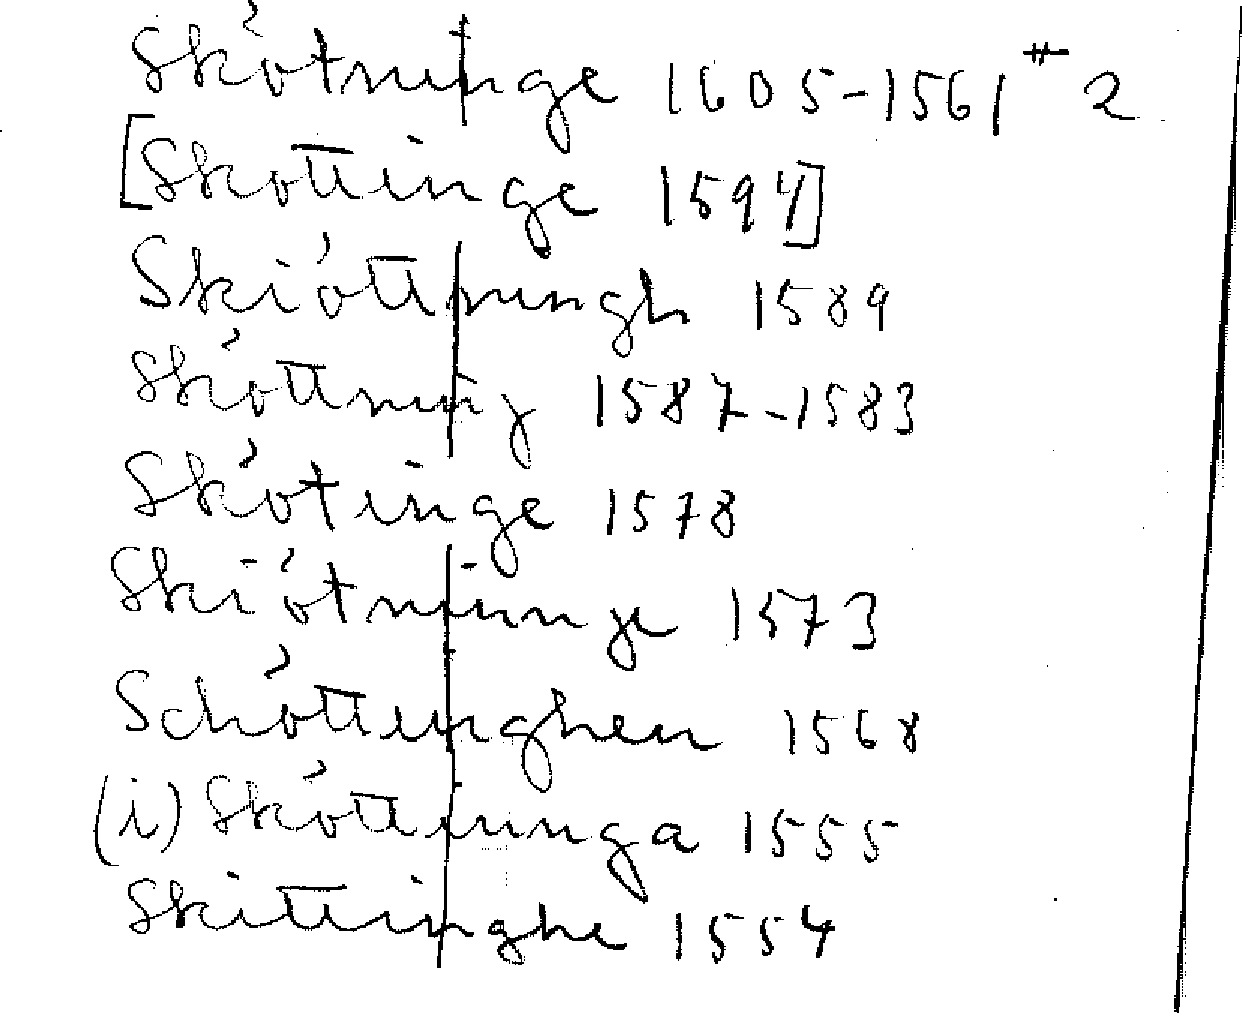 Skötninge 1605-1561 # 2
[Skottinge 1594]
Skiöttningh 1589
Sköttning 1587-1583
Skötinge 1578
Skiötninge 1573
Schöttinghen 1568
(i) Sköttninga 1555
Skittinghe 1554